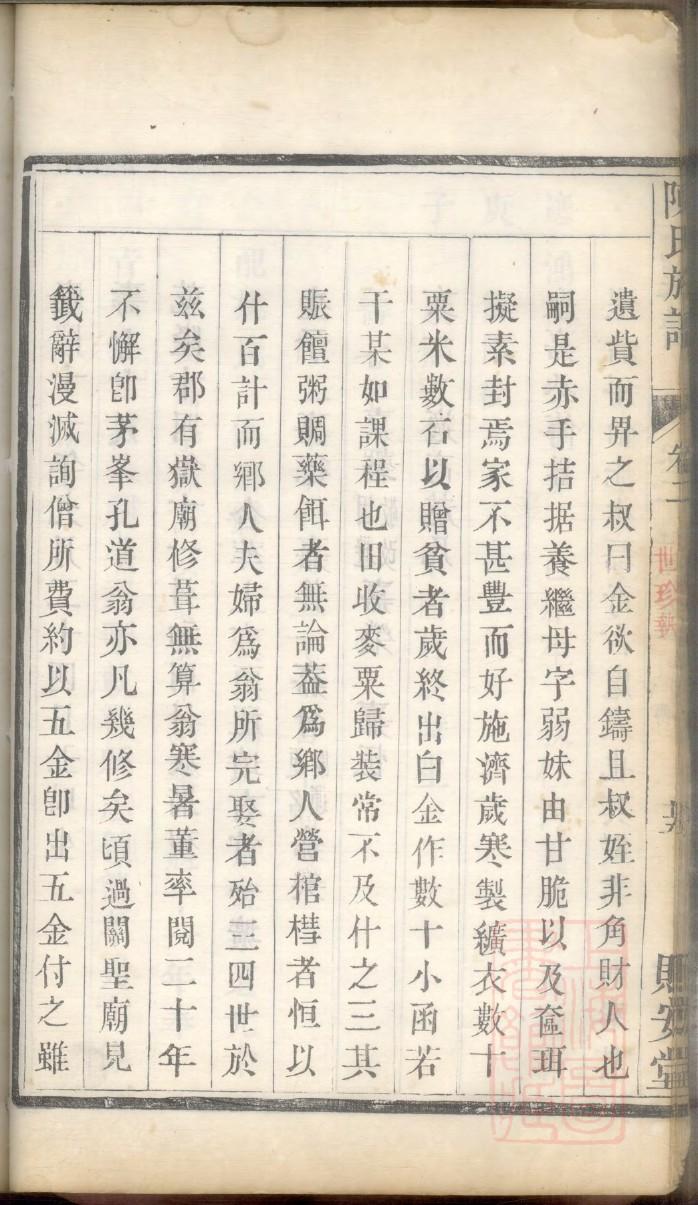 遺貲而畀之叔曰金欲自鑄且叔姪非角財人也
嗣是赤手拮据養繼母字弱妹由甘脆以及奩珥
擬素封焉家不甚豐而好施濟歲寒製纊衣數十
粟米數石以贈貧者歲終出白金作數十小函若
干某如課程也田收麥粟歸装常不及什之三其
賑饘粥賙藥餌者無論葢爲鄉人營棺槥者恒以
什百計而鄉人夫婦爲翁所完娶者殆三四世於
兹矣郡有嶽廟修葺無算翁寒暑董率閱二十年
不懈卽茅峯孔道翁亦凡幾修矣頃過關聖廟見
籤辭漫滅詢僧所費約以五金卽出五金付之雖
陳氏族譜
卷二
賜安堂
世珍